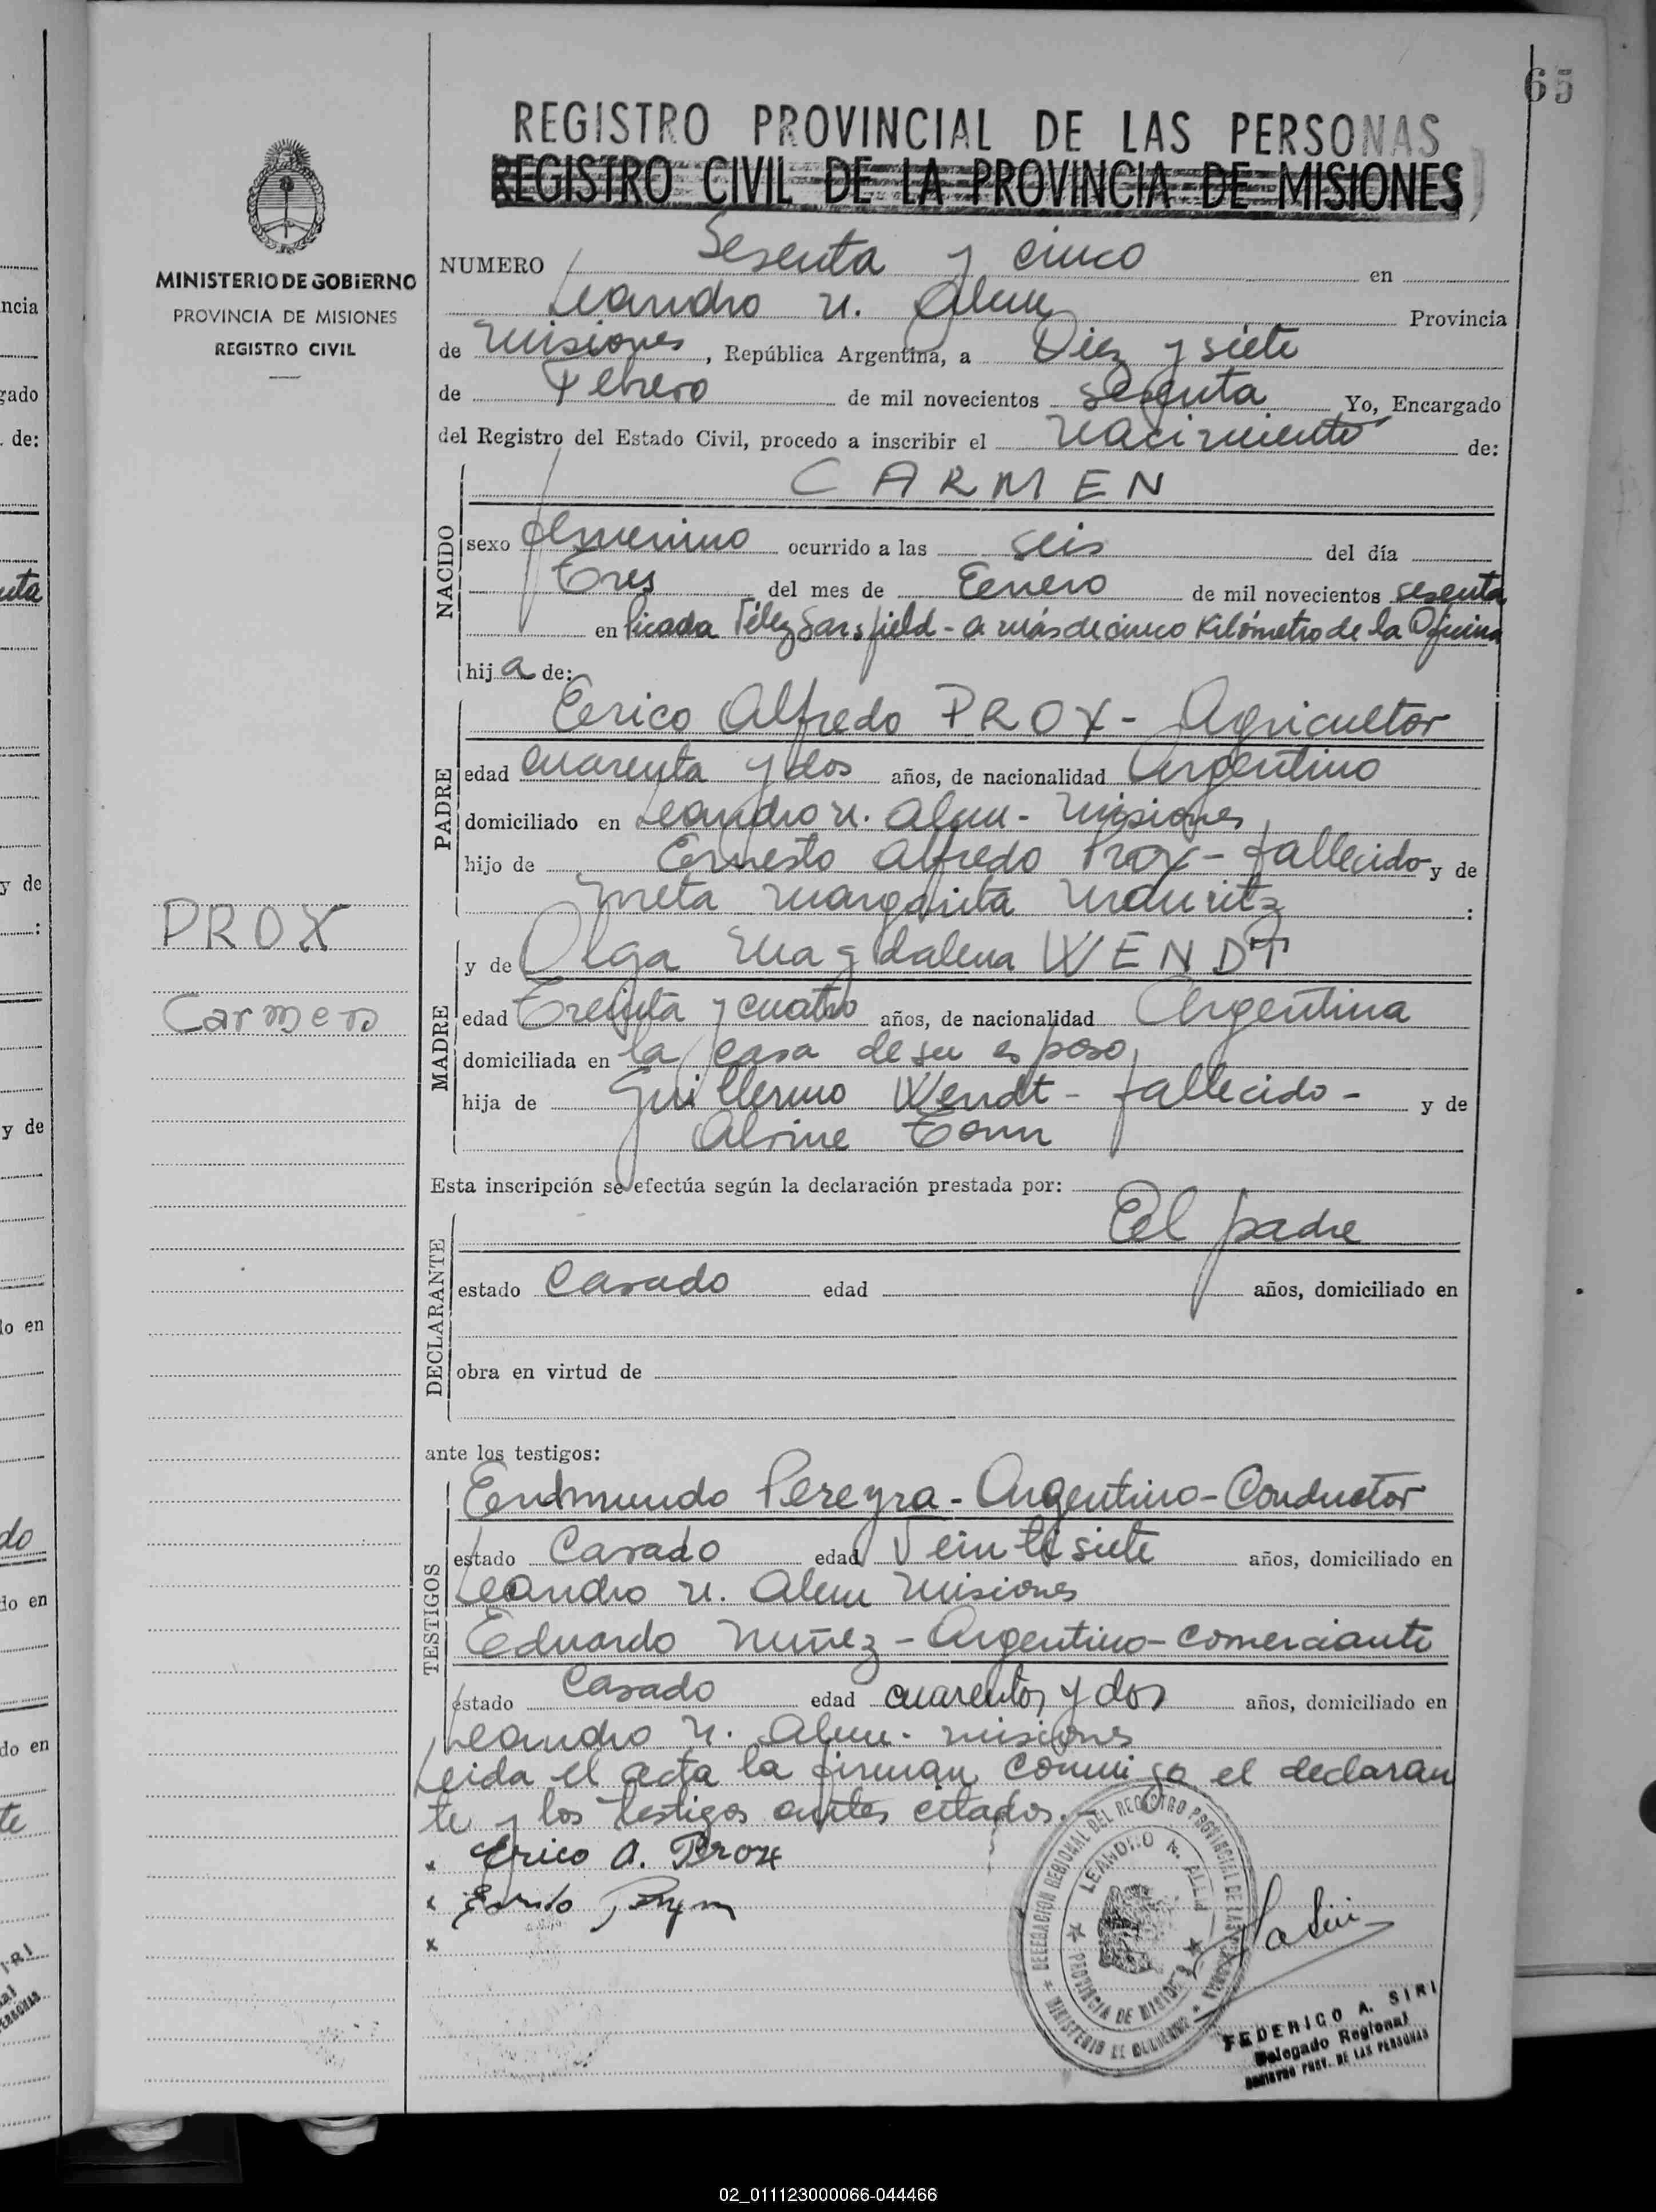 65
REGISTRO PROVINCIAL DE LAS PERSONAS
REGISTRO CIVIL DE LA PROVINCIA DE MISIONES
MINISTERIO DE GOBIERNO
PROVINCIA DE MISIONES
REGISTRO CIVIL
NUMERO Sesenta y cinco en
Leandro N. Alem Provincia
de Misiones, República Argentina, a Diez y siete
de Febrero de mil novecientos sesenta Yo, Encargado
del Registro del Estado Civil, procedo a inscribir el nacimiento de:
NACIDO
CARMEN
sexo femenino ocurrido a las seis del día
Tres del mes de Enero de mil novecientos sesenta
en Picada Vélez Sarsfield - a más de cinco Kilómetro de la Oficina
hija de:
PADRE
Erico Alfredo PROX - Agricultor
edad cuarenta y dos años, de nacionalidad Argentino
domiciliado en Leandro N. Alem - Misiones
hijo de Ernesto Alfredo Prox - fallecido y de
Meta Margarita Mauritz :
PROX
Carmen
MADRE
y de Olga Magdalena WENDT
edad Treinta y cuatro años, de nacionalidad Argentina
domiciliada en la casa de su esposo
hija de Guillermo Wendt - fallecido - y de
Alvine Tonn
Esta inscripción se efectúa según la declaración prestada por:
DECLARANTE
El padre
estado Casado edad años, domiciliado en
obra en virtud de
ante los testigos:
TESTIGOS
Edmundo Pereyra - Argentino - Conductor
estado Casado edad Veintisiete años, domiciliado en
Leandro N. Alem Misiones
Eduardo Nuñez - Argentino - comerciante
estado Casado edad cuarenta y dos años, domiciliado en
Leandro N. Alem - Misiones
Leida el acta la firman conmigo el declaran
te y los testigos antes citados.-
x Erico A. Prox
x
x
DELEGACION REGIONAL DEL REGISTRO PROVINCIAL DE LAS PERSONAS
MINISTERIO DE GOBIERNO
LEANDRO N. ALEM
PROVINCIA DE MISIONES
FEDERICO A. SIRI
Delegado Regional
REGISTRO PROV. DE LAS PERSONAS
02_011123000066-044466